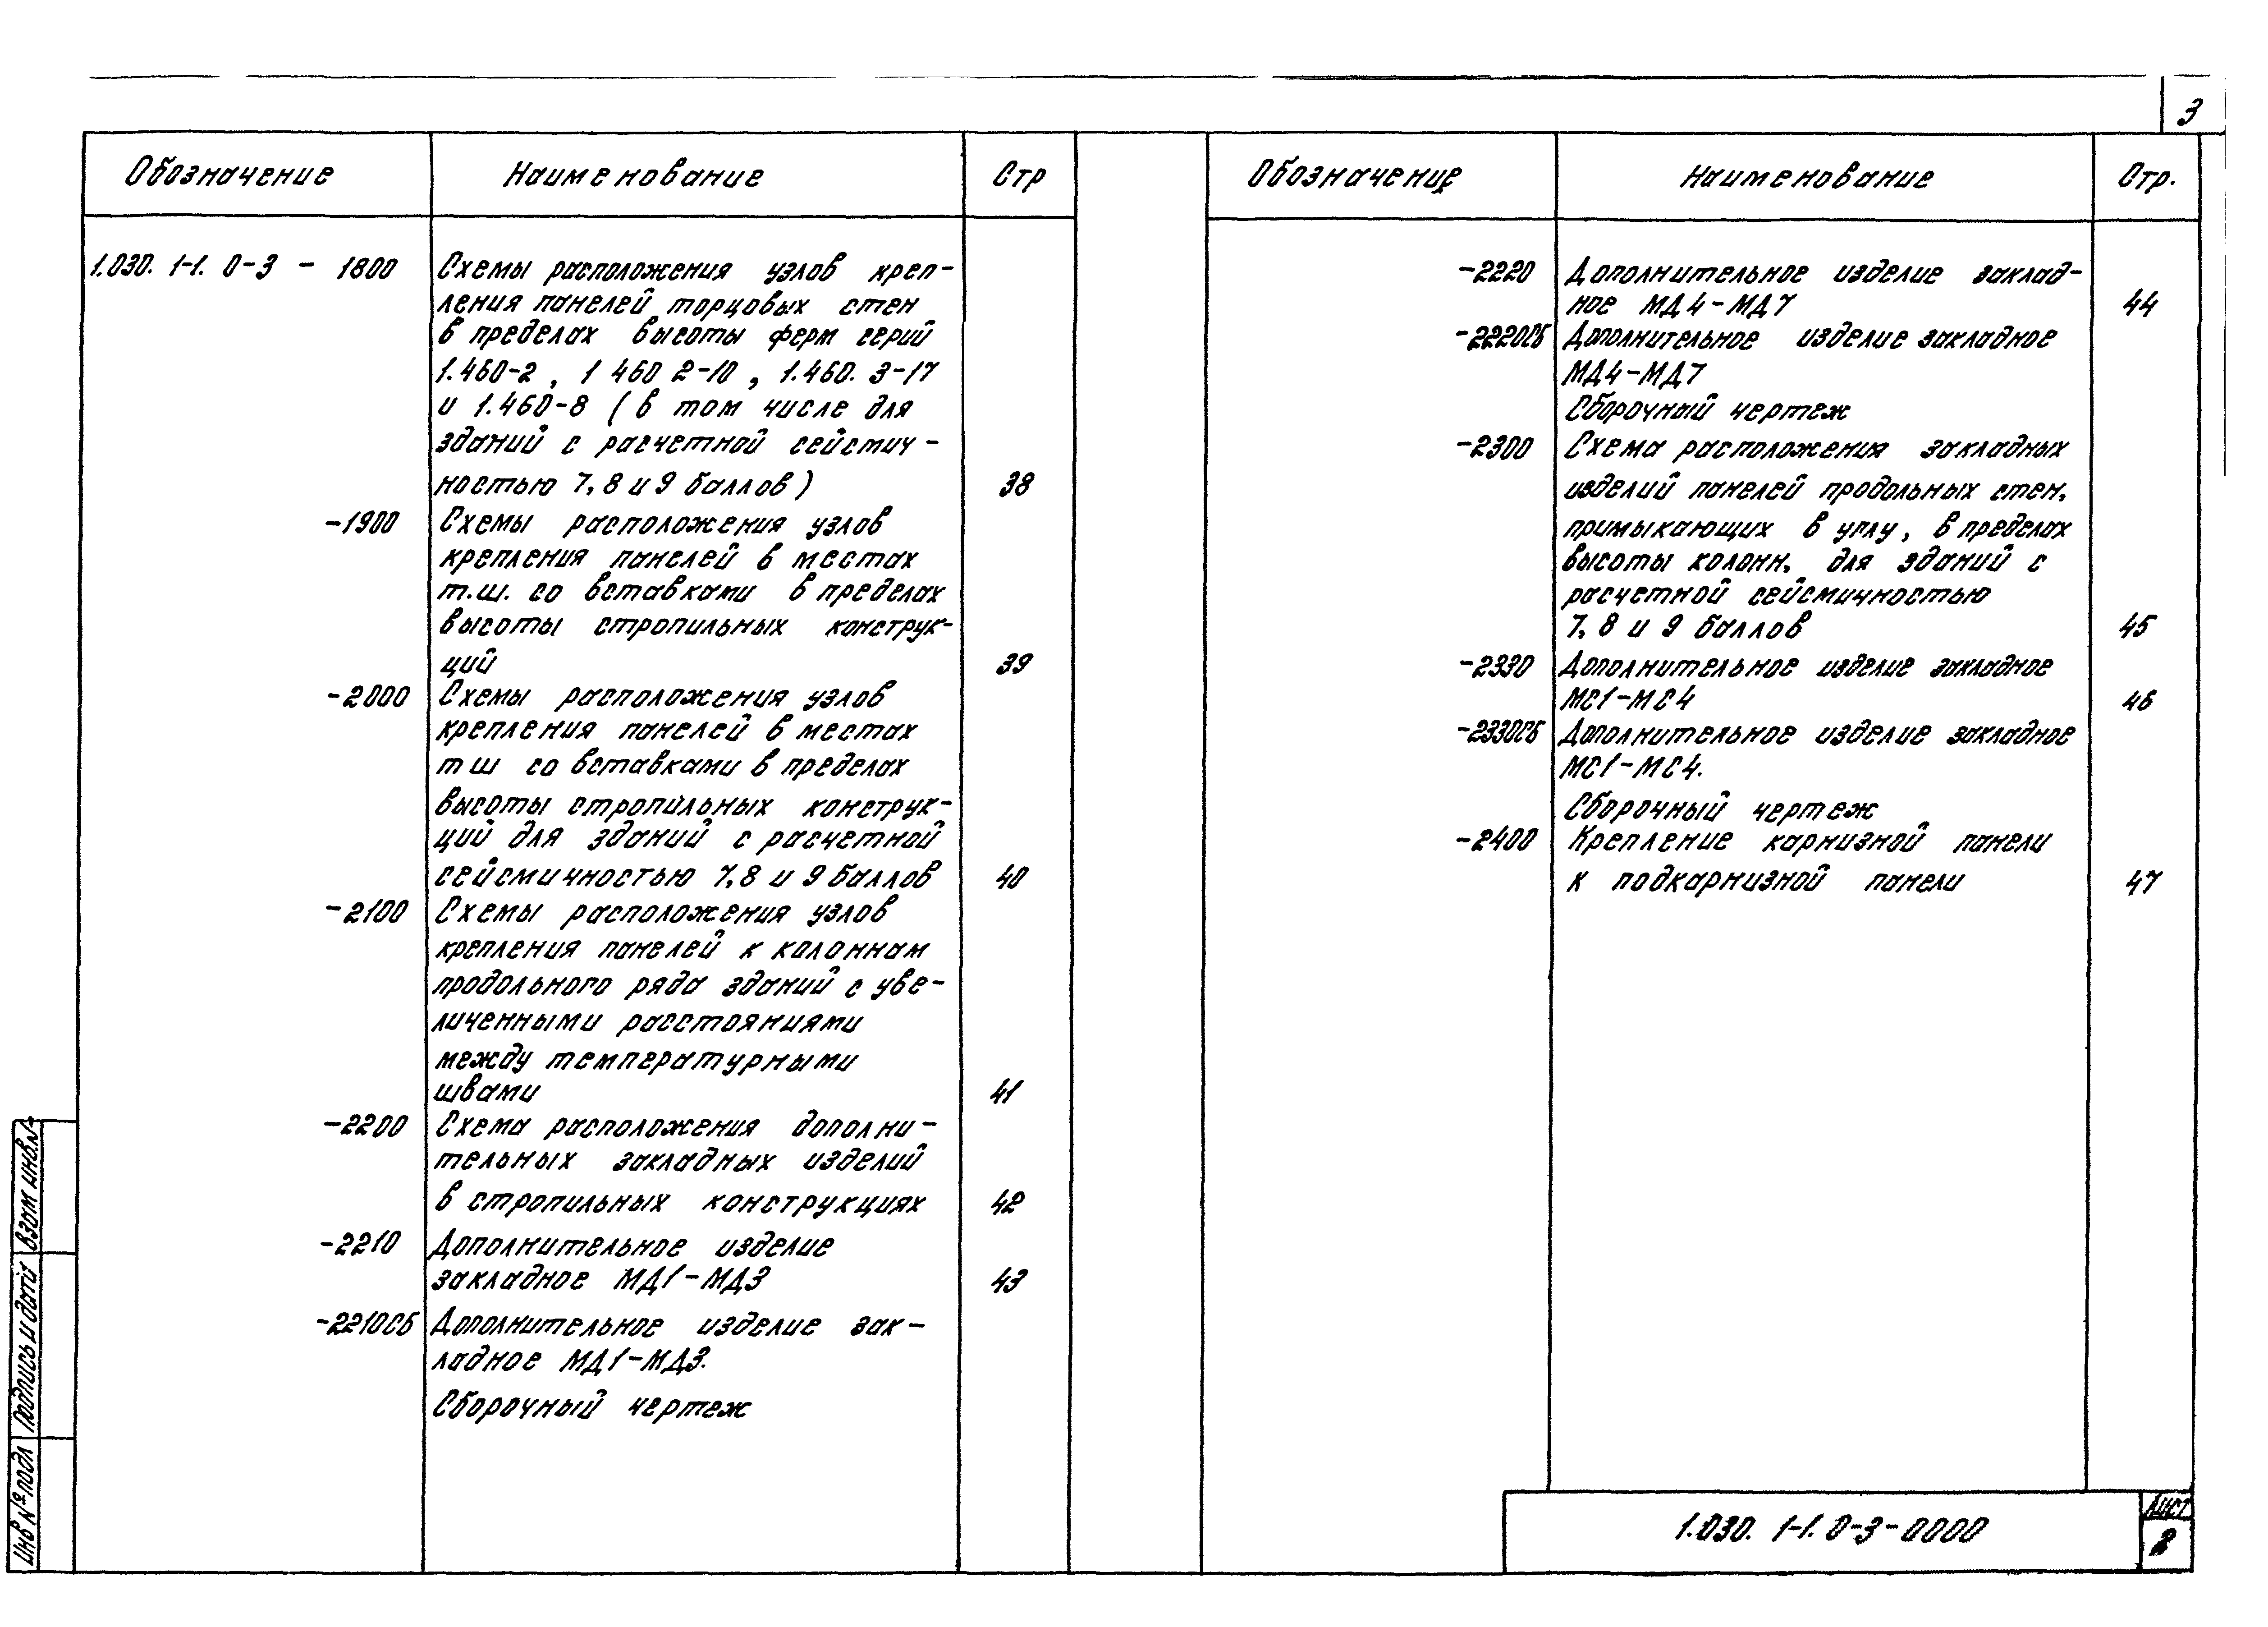 3
Обозначение Наименование Стр
1.030. 1-1. 0-3 - 1800 Схемы расположения узлов креп-
ления панелей торцовых стен
в пределах высоты ферм серий
1.460-2, 1 460 2-10, 1.460. 3-17
и 1.460-8 (в том числе для
зданий с расчетной сейсмич-
ностью 7, 8 и 9 баллов) 38
-1900 Схемы расположения узлов
крепления панелей в местах
т.ш. со вставками в пределах
высоты стропильных конструк-
ций 39
-2000 Схемы расположения узлов
крепления панелей в местах
т ш со вставками в пределах
высоты стропильных конструк-
ций для зданий с расчетной
сейсмичностью 7, 8 и 9 баллов 40
-2100 Схемы расположения узлов
крепления панелей к колоннам
продольного ряда зданий с уве-
личенными расстояниями
между температурными
швами 41
-2200 Схема расположения дополни-
тельных закладных изделий
в стропильных конструкциях 42
-2210 Дополнительное изделие
закладное МД1-МД3 43
-2210СБ Дополнительное изделие зак-
ладное МД1-МД3.
Сборочный чертеж
Обозначение Наименование Стр.
-2220 Дополнительное изделие заклад-
ное МД4-МД7 44
-2220СБ Дополнительное изделие закладное
МД4-МД7
Сборочный чертеж
-2300 Схема расположения закладных
изделий панелей продольных стен,
примыкающих в углу, в пределах
высоты колонн, для зданий с
расчетной сейсмичностью
7, 8 и 9 баллов 45
-2330 Дополнительное изделие закладное
МС1-МС4 46
-2330СБ Дополнительное изделие закладное
МС1-МС4.
Сборочный чертеж
-2400 Крепление карнизной панели
к подкарнизной панели 47
Инв № подл Подпись и дата Взам инв.№
1.030. 1-1. 0-3-0000
Лист
2